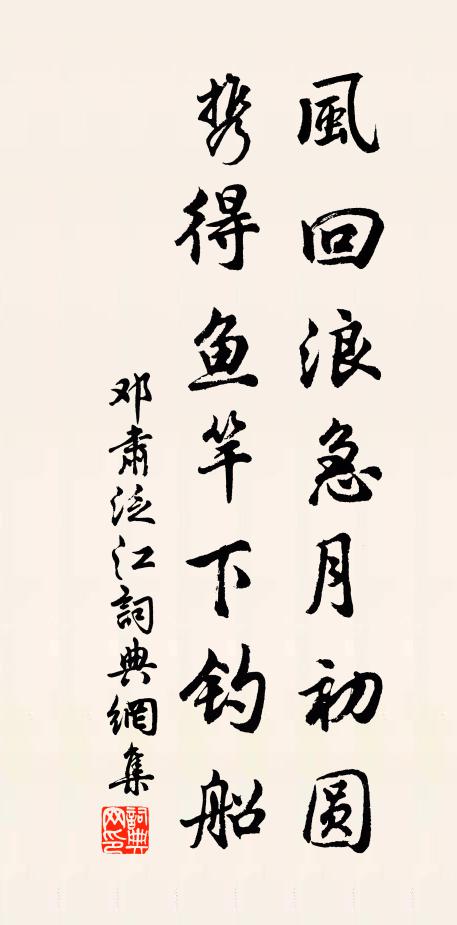 風回浪急月初圆
携得鱼竿下钓船
邓肃泛江詞典網集
詞典网印